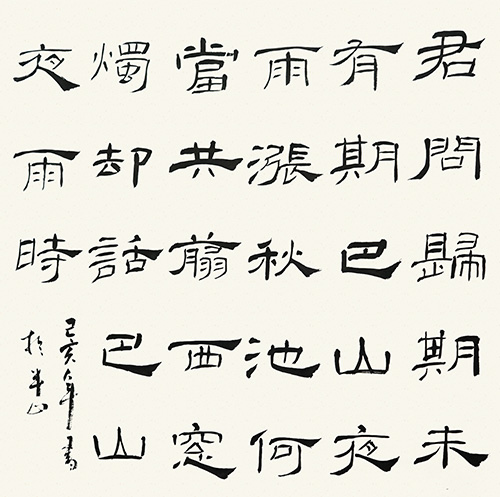 君問歸期未
有期巴山夜
雨漲秋池何
當共翦西窓
燭却話巴山
夜雨時
己亥年書
於半山